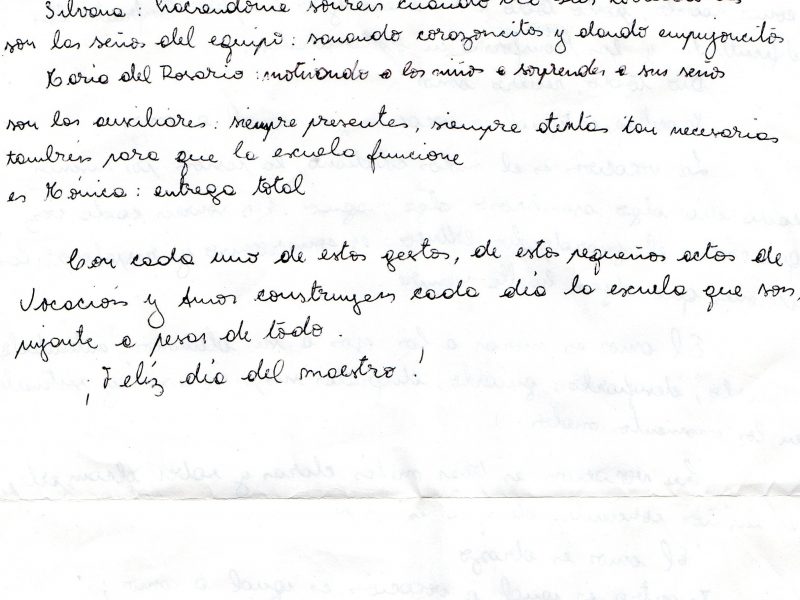 Silvana: haciéndome sonreír cuando
son las seños del equipo: sanando corazoncitos y dando empujoncitos
María del Rosario: motivando a los niños a sorprender a sus seños
son las auxiliares: siempre presentes, siempre atentas tan necesarias
también para que la escuela funcione
es Mónica: entrega total
Con cada uno de estos gestos, de estos pequeños actos de
Vocación y Amor construyen cada día la escuela que son,
pujante a pesar de todo.
¡Feliz día del maestro!